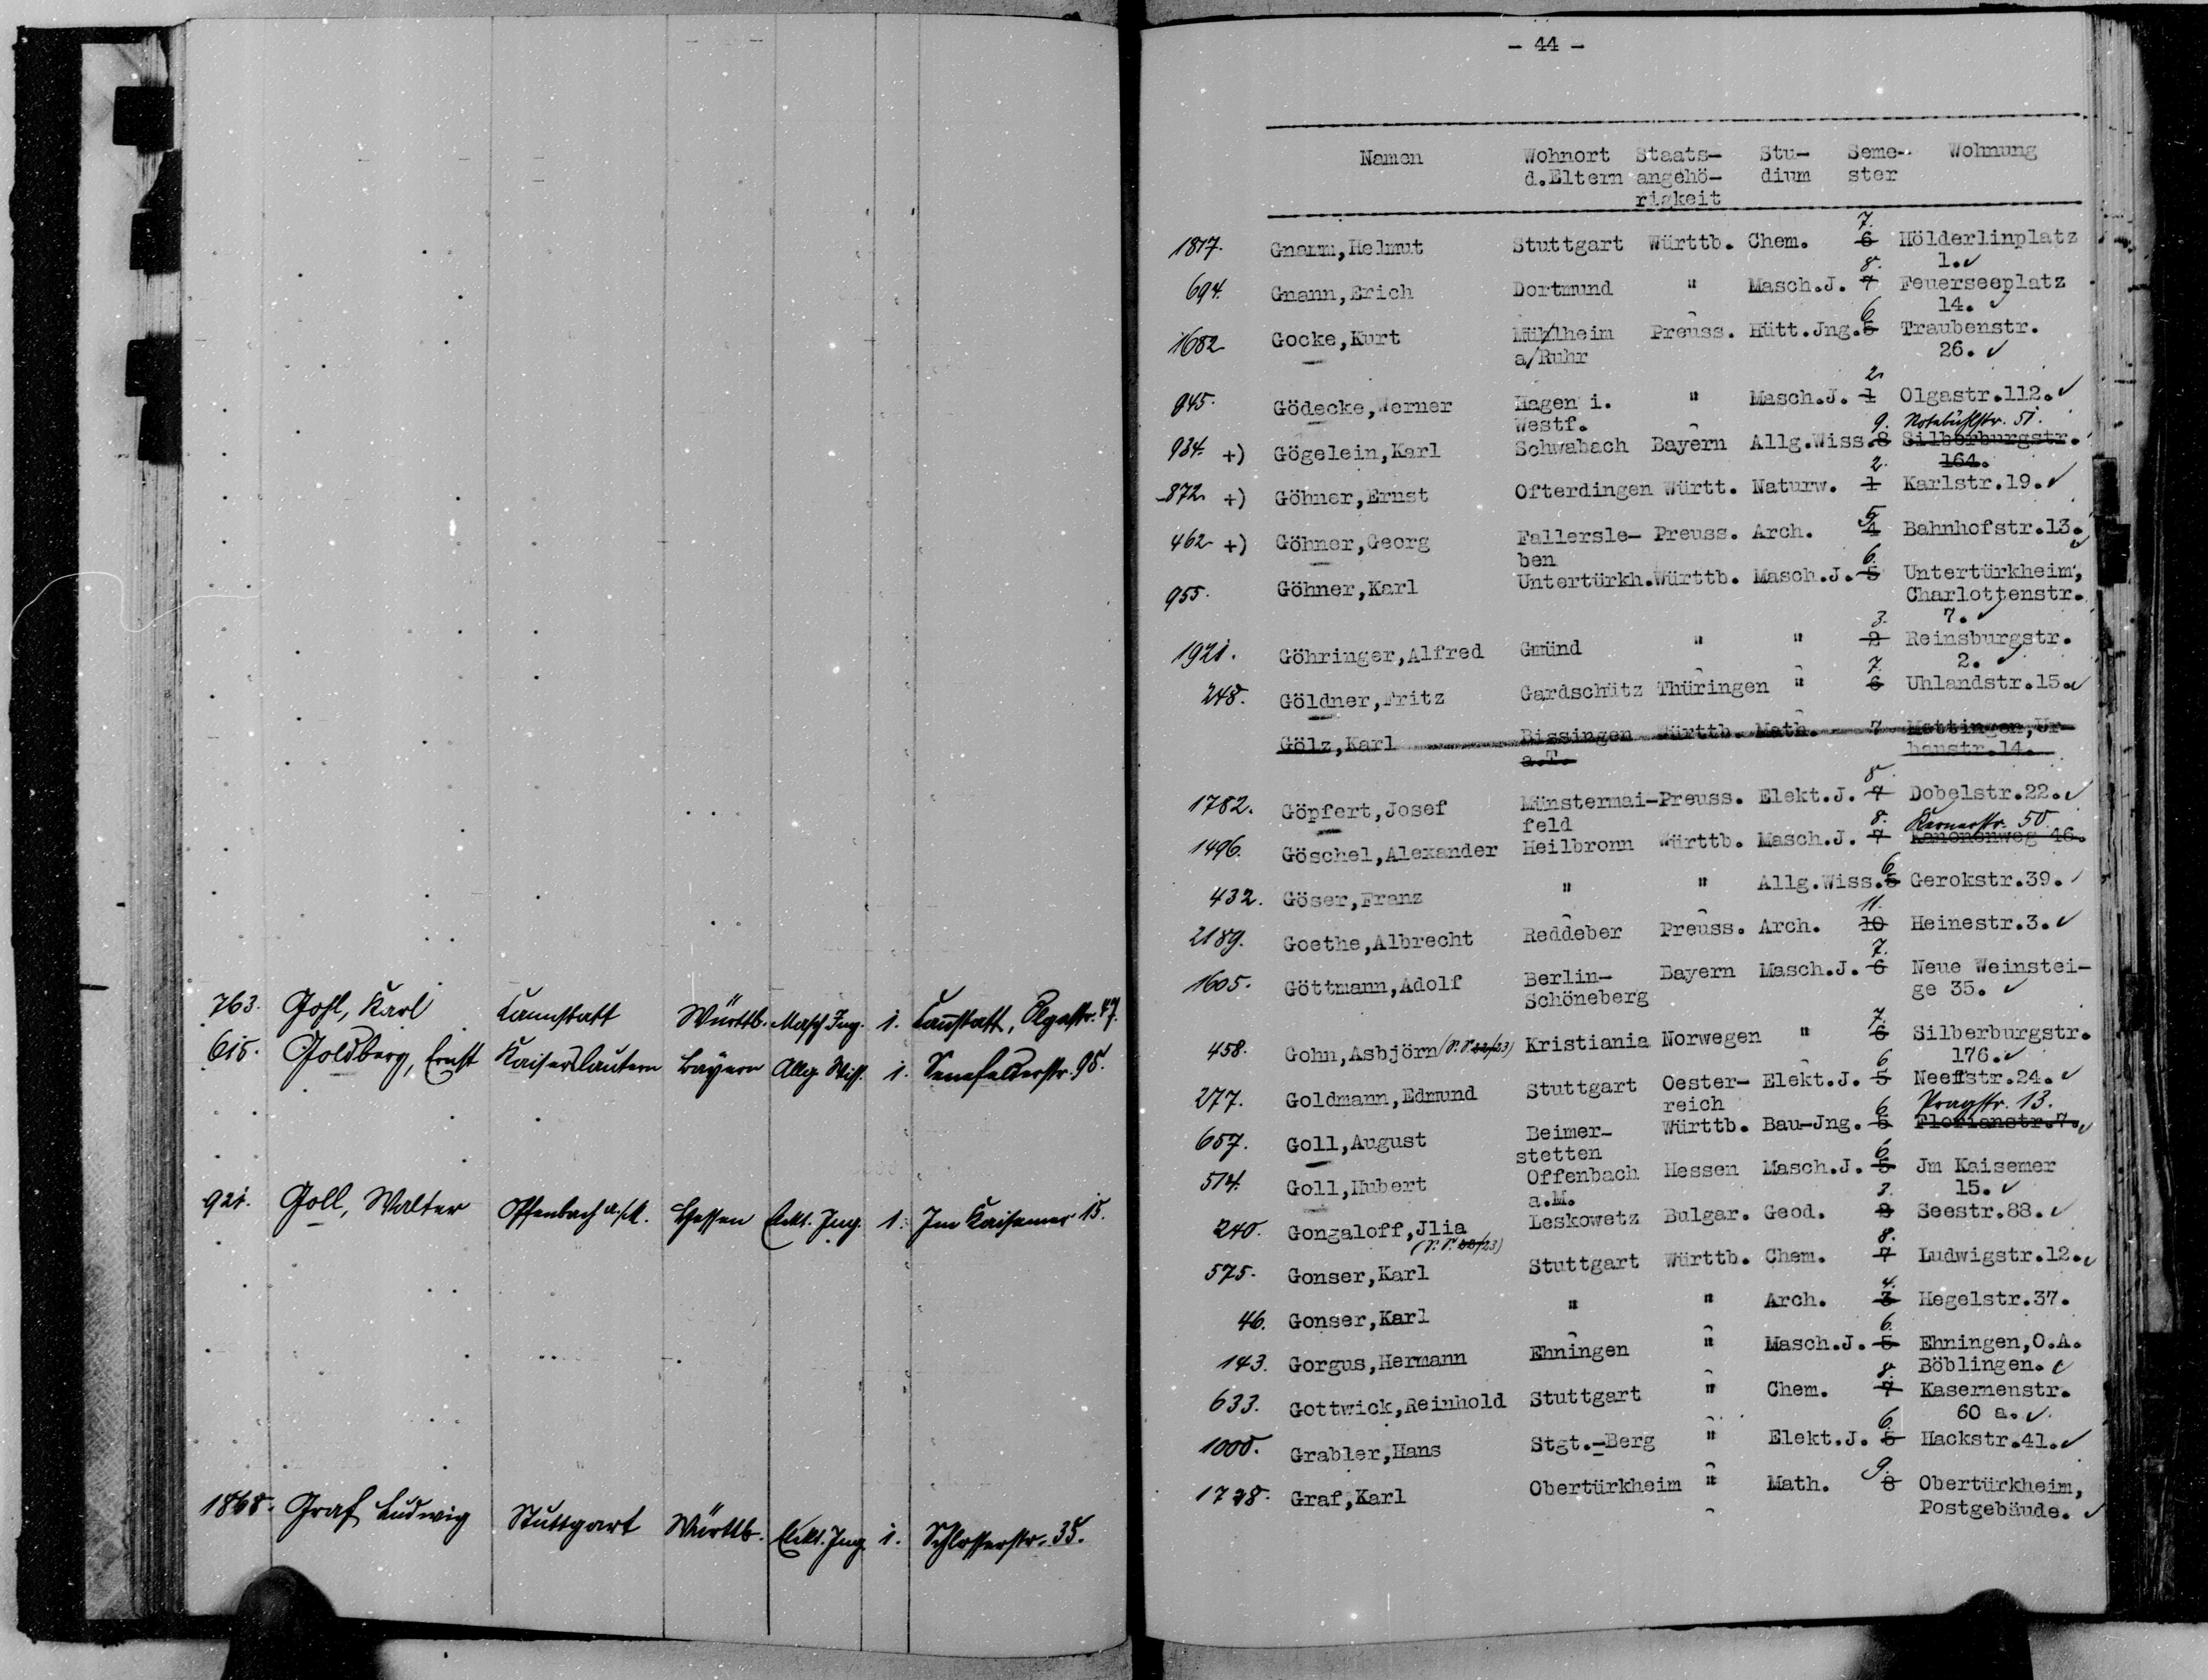 763. Gohl, Karl Cannstatt Württb. Masch. Ing. 1. Cannstatt, Olgastr. 47.
615. Goldberg, Ernst Kaiserslautern Bayern Allg. Wiss. 1. Senefelderstr. 95.
921. Goll, Walter Offenbach a./M. Hessen Elekt. Ing. 1. Im Kaisemer 15.
1868. Graf, Ludwig Stuttgart Württb. Elekt. Ing. 1. Schlosserstr. 35.
- 44 -
Namen Wohnort Staats- Stu- Seme- Wohnung
d.Eltern angehö- dium ster
rigkeit
7.
1817. Gnamm,Helmut Stuttgart Württb. Chem. 6 Hölderlinplatz
8. 1.✓
694. Gnann,Erich Dortmund " Masch.J. 7 Feuerseeplatz
6 14. ✓
1682 Gocke,Kurt Mühlheim Preuss. Hütt.Jng. 5 Traubenstr.
a/Ruhr 26. ✓
2.
945. Gödecke,Werner Hagen i. " Masch.J. 1 Olgastr.112.✓
Westf. 9. Rotebühlstr. 51.
984. +) Gögelein,Karl Schwabach Bayern Allg.Wiss.8 Silberburgstr.
2. 164.
872. +) Göhner,Ernst Ofterdingen Württ. Naturw. 1 Karlstr.19.✓
5
462 +) Göhner,Georg Fallersle- Preuss. Arch. 4 Bahnhofstr.13.✓
ben 6.
955. Göhner,Karl Untertürkh.Württb. Masch.J. 5 Untertürkheim,
Charlottenstr.
3. 7. ✓
1921. Göhringer,Alfred Gmünd " " 2 Reinsburgstr.
7. 2. ✓
248. Göldner,Fritz Gardschütz Thüringen " 6 Uhlandstr.15.✓
Gölz,Karl Bissingen Württb. Math. 7 Mettingen,Ur-
a.T. banstr.14.
8.
1782. Göpfert,Josef Münstermai-Preuss. Elekt.J. 7 Dobelstr.22.✓
feld 8. Kernerstr. 50
1496. Göschel,Alexander Heilbronn Württb. Masch.J. 7 Kanonenweg 46.
6
432. Göser,Franz " " Allg.Wiss.5 Gerokstr.39. ✓
11.
2189. Goethe,Albrecht Reddeber Preuss. Arch. 10 Heinestr.3.✓
7.
1605. Göttmann,Adolf Berlin- Bayern Masch.J. 6 Neue Weinstei-
Schöneberg ge 35. ✓
7.
458. Gohn,Asbjörn (V.V. 22/23) Kristiania Norwegen " 6 Silberburgstr.
6 176.✓
277. Goldmann,Edmund Stuttgart Oester- Elekt.J. 5 Neeffstr.24. ✓
reich 6 Pragstr. 13.
657. Goll,August Beimer- Württb. Bau-Jng. 5 Florianstr.7.✓
stetten 6
514. Goll,Hubert Offenbach Hessen Masch.J. 5 Jm Kaisemer
a.M. 3. 15. ✓
240. Gongaloff,Jlia Leskowetz Bulgar. Geod. 2 Seestr.88. ✓
(V.V. 22/23) 8.
575. Gonser,Karl Stuttgart Württb. Chem. 7 Ludwigstr.12.✓
4.
46. Gonser,Karl " " Arch. 3 Hegelstr.37.
6.
143. Gorgus,Hermann Ehningen " Masch.J. 5 Ehningen,O.A.
8. Böblingen. ✓
633. Gottwick,Reinhold Stuttgart " Chem. 7 Kasernenstr.
6 60 a. ✓
1000. Grabler,Hans Stgt.-Berg " Elekt.J. 5 Hackstr.41.✓
9.
1728. Graf,Karl Obertürkheim " Math. 8 Obertürkheim,
Postgebäude. ✓